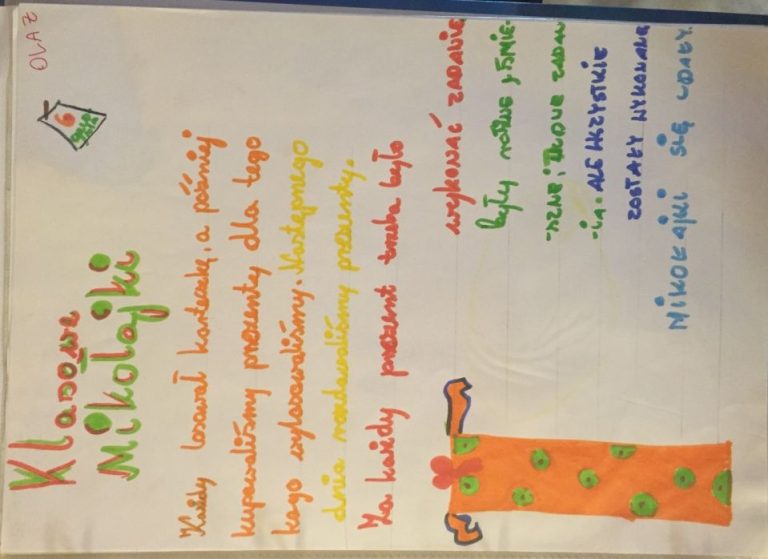 OLA Z
6
Klasowe
Mikołajki
Każdy losował karteczkę, a później
kupowaliśmy prezenty dla tego
kogo wylosowaliśmy. Następnego
dnia rozdawaliśmy prezenty.
Za każdy prezent trzeba było
wykonać ZADANIE
były różne, ŚMIE-
-SZNE, i TRUDNE ZADAN
-ia. ALE WSZYSTKIE
ZOSTAŁY WYKONANE
MIKOŁAJKI SIĘ UDAŁY.